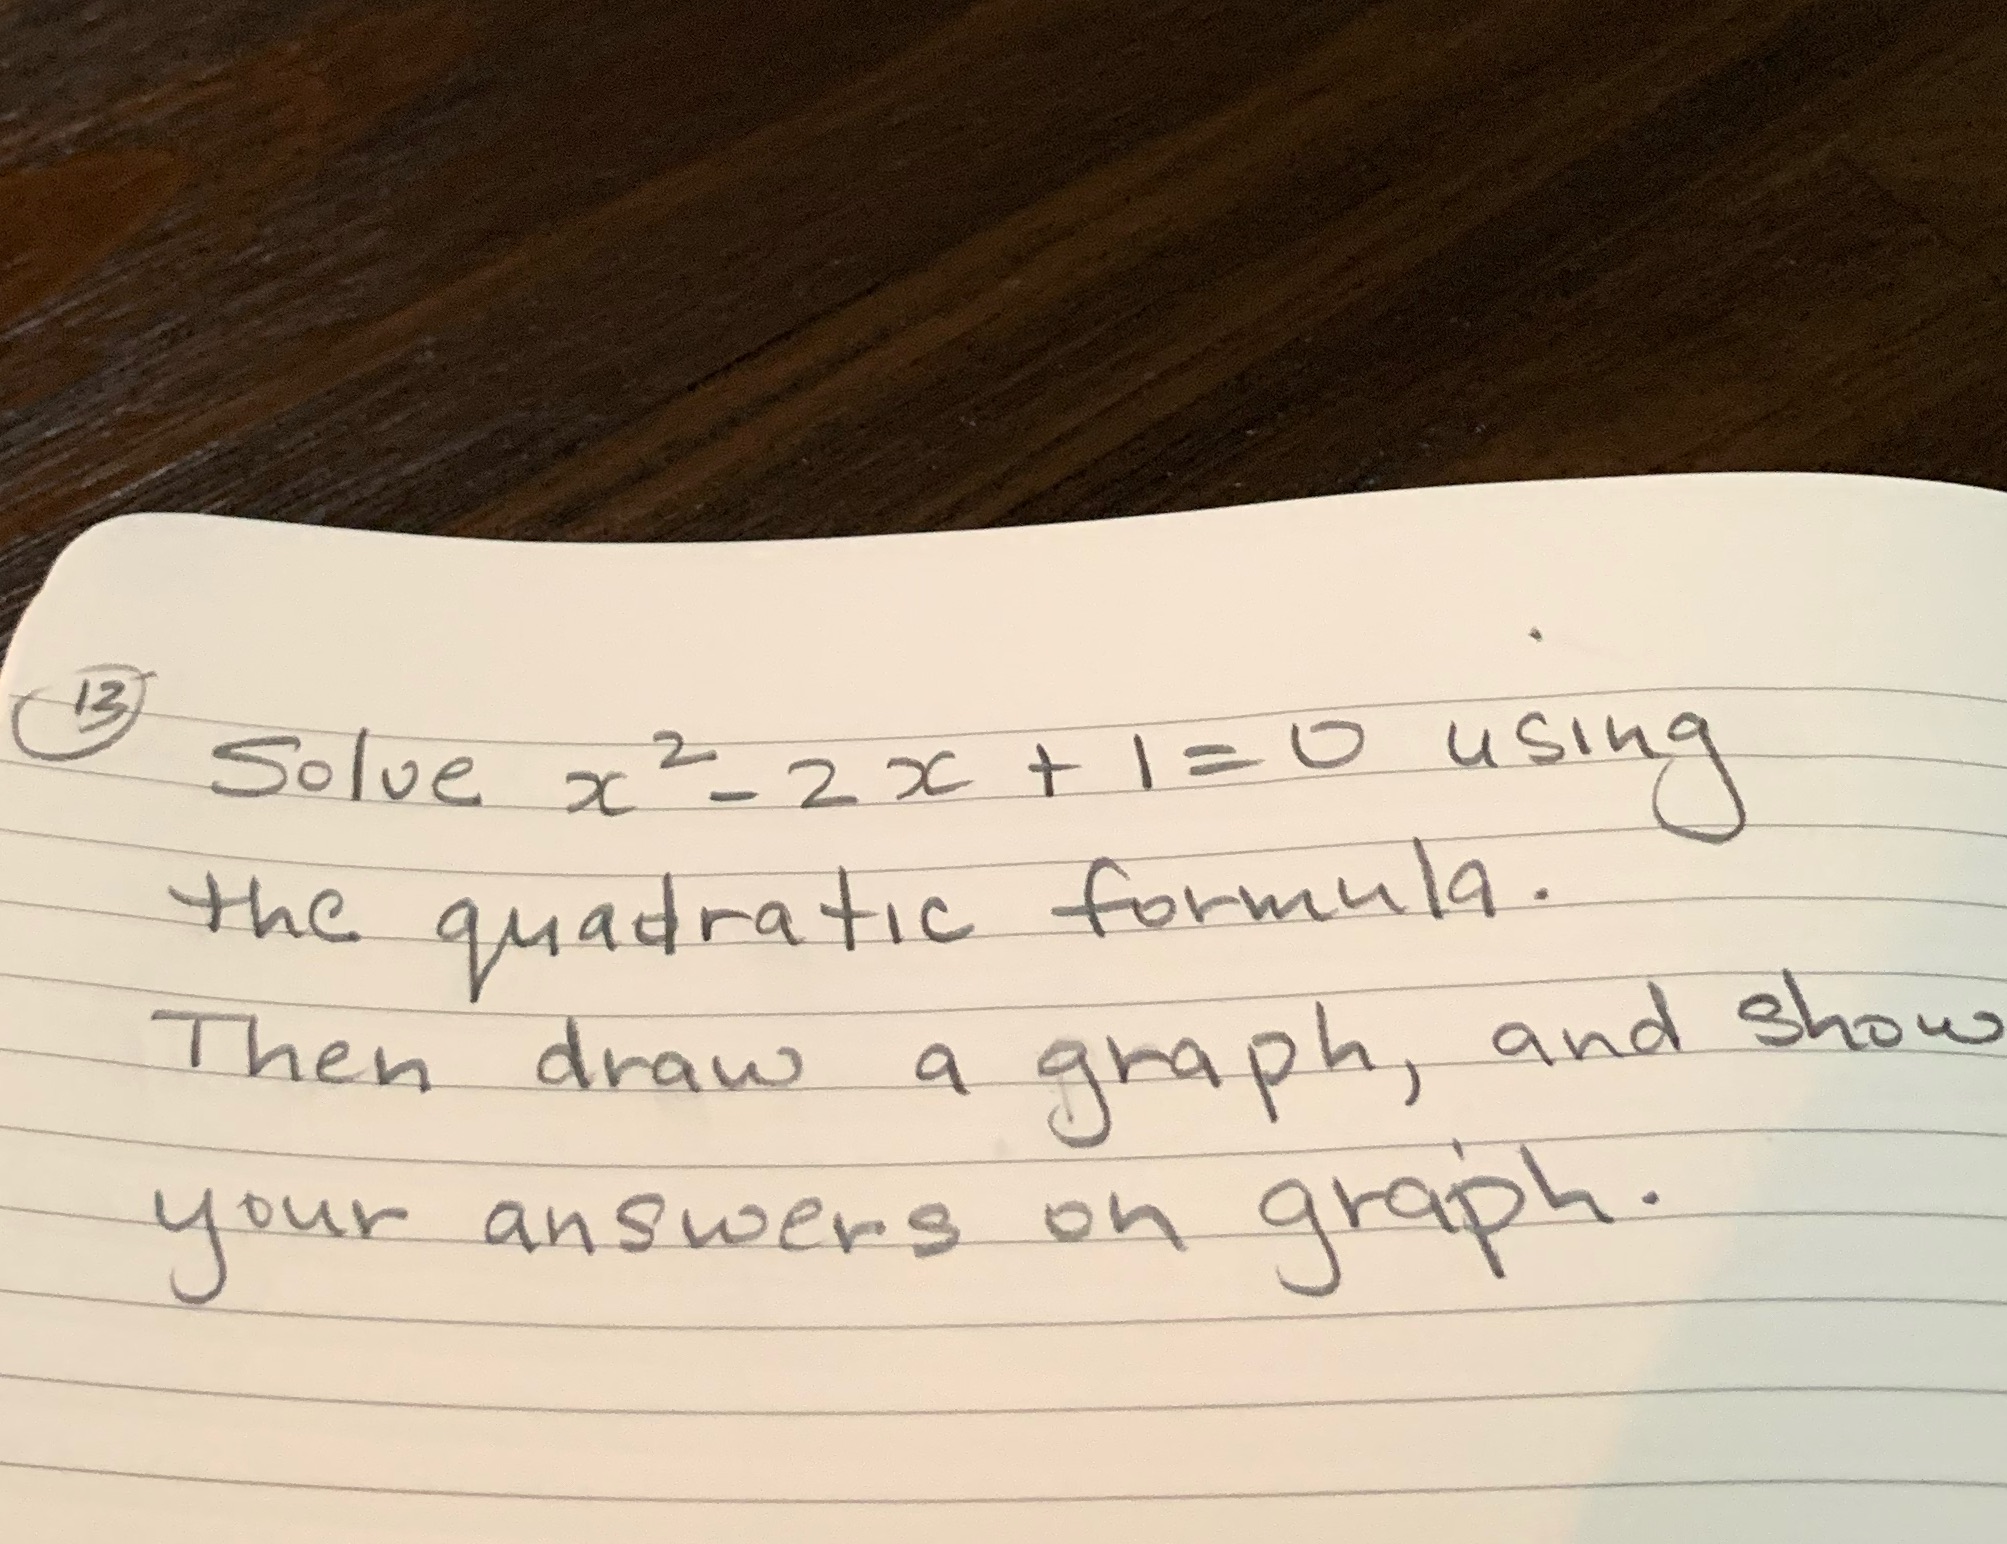 13
Solve x² - 2x + 1 = 0 using
the quadratic formula.
Then draw a graph, and show
your answers on graph.